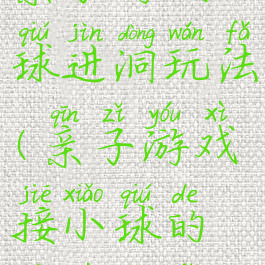 qiú jìn dòng wán fǎ
球进洞玩法
qīn zǐ yóu xì
(亲子游戏
jiē xiǎo qiú de
接小球的